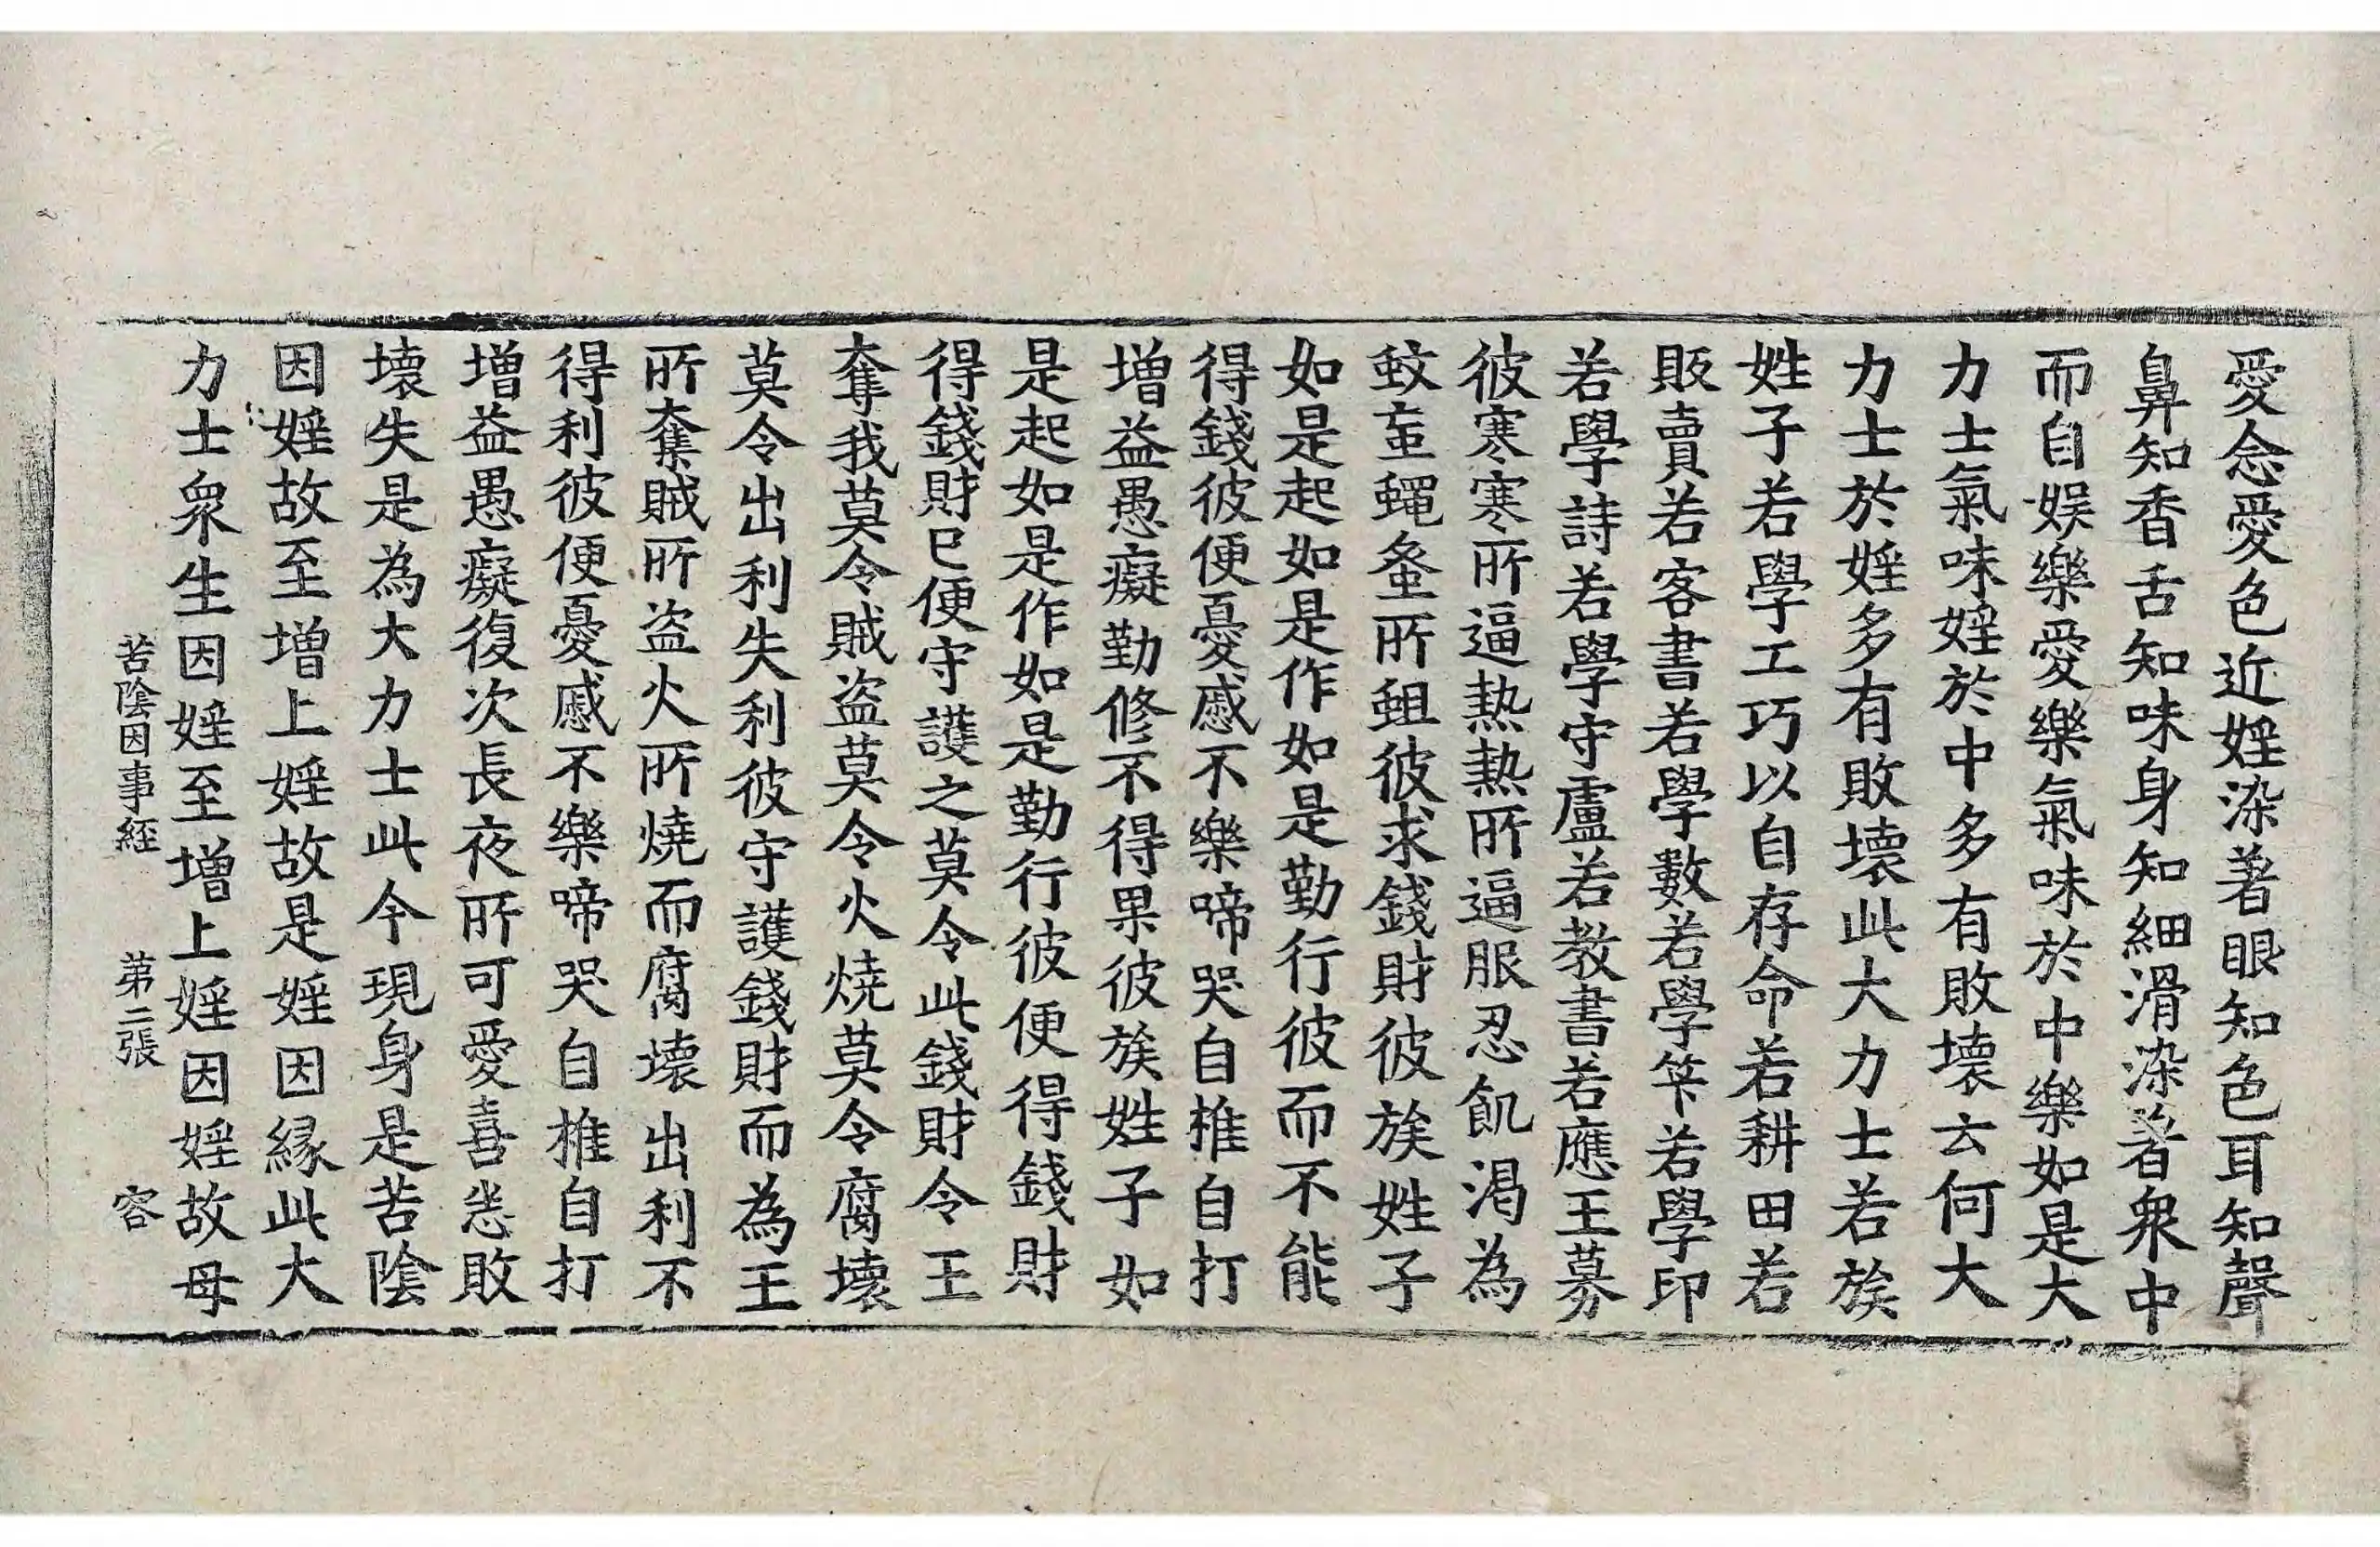 愛念愛色近婬染著眼知色耳知聲
鼻知香舌知味身知細滑染著衆中
而自娛樂愛樂氣味於中樂如是大
力士氣味婬於中多有敗壞云何大
力士於婬多有敗壞此大力士若族
姓子若學工巧以自存命若耕田若
販賣若客書若學數若學笇若學印
若學詩若學守盧若教書若應王募
彼寒寒所逼熱熱所逼服忍飢渴為
蚊䖟蠅蚤所蛆彼求錢財彼族姓子
如是起如是作如是勤行彼而不能
得錢彼便憂慼不樂啼哭自椎自打
增益愚癡勤修不得果彼族姓子如
是起如是作如是勤行彼便得錢財
得錢財已便守護之莫令此錢財令王
奪我莫令賊盜莫令火燒莫令腐壞
莫令出利失利彼守護錢財而為王
所奪賊所盜火所燒而腐壞出利不
得利彼便憂慼不樂啼哭自椎自打
增益愚癡復次長夜所可愛喜恙敗
壞失是為大力士此今現身是苦陰
因婬故至增上婬故是婬因緣此大
力士衆生因婬至增上婬因婬故母
苦陰因事經 第二張 容